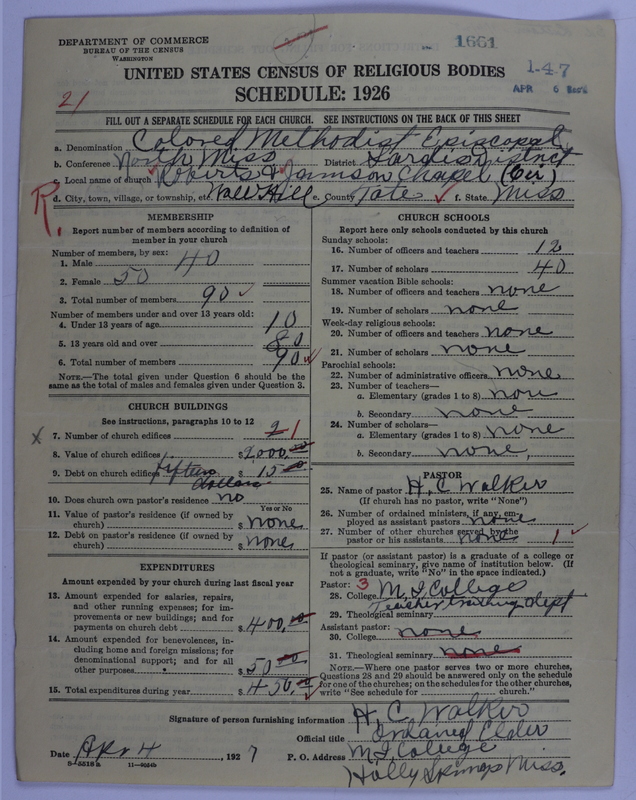 DEPARTMENT OF COMMERCE
BUREAU OF THE CENSUS
WASHINGTON
1661
1-47
APR 6
UNITED STATES CENSUS OF RELIGIOUS BODIES
SCHEDULE: 1926
21
FILL OUT A SEPARATE SCHEDULE FOR EACH CHURCH. SEE INSTRUCTIONS ON THE BACK OF THIS SHEET
a. Denomination Colored Methodist Episcopal
b. Conference North Miss District Sardis District
c. Local name of church Roberts & Jamison Chapel (Cir)
d. City, town, village, or township, etc. Wall Hill e. County Tate f. State Miss
R.
MEMBERSHIP
Report number of members according to definition of
member in your church
Number of members, by sex:
1. Male 40
2. Female 50
3. Total number of members 90
Number of members under and over 13 years old:
4. Under 13 years of age 10
5. 13 years old and over 80
6. Total number of members 90
NOTE.—The total given under Question 6 should be the
same as the total of males and females given under Question 3.
CHURCH BUILDINGS
See instructions, paragraphs 10 to 12
x 7. Number of church edifices 2 1
8. Value of church edifices $2000.00
9. Debt on church edifices fifteen dollars $15.00
10. Does church own pastor's residence no
Yes or No
11. Value of pastor's residence (if owned by
church) $ none
12. Debt on pastor's residence (if owned by
church) $ none
EXPENDITURES
Amount expended by your church during last fiscal year
13. Amount expended for salaries, repairs,
and other running expenses; for im-
provements or new buildings; and for
payments on church debt $400.00
14. Amount expended for benevolences, in-
cluding home and foreign missions; for
denominational support; and for all
other purposes $50.00
15. Total expenditures during year $450.00
CHURCH SCHOOLS
Report here only schools conducted by this church
Sunday schools:
16. Number of officers and teachers 12
17. Number of scholars 40
Summer vacation Bible schools:
18. Number of officers and teachers none
19. Number of scholars none
Week-day religious schools:
20. Number of officers and teachers none
21. Number of scholars none
Parochial schools:
22. Number of administrative officers none
23. Number of teachers—
a. Elementary (grades 1 to 8) none
b. Secondary none
24. Number of scholars—
a. Elementary (grades 1 to 8) none
b. Secondary none
PASTOR
25. Name of pastor H. C. Walker
(If church has no pastor, write "None")
26. Number of ordained ministers, if any, em-
ployed as assistant pastors none
27. Number of other churches served by the
pastor or his assistants none 1
If pastor (or assistant pastor) is a graduate of a college or
theological seminary, give name of institution below. (If
not a graduate, write "No" in the space indicated.)
Pastor: 3
28. College M. I. College
Teacher training Dept
29. Theological seminary
Assistant pastor:
30. College none
31. Theological seminary none
NOTE.—Where one pastor serves two or more churches,
Questions 28 and 29 should be answered only on the schedule
for one of the churches; on the schedules for the other churches,
write "See schedule for church."
Signature of person furnishing information H. C. Walker
Official title Ordained Elder
Date Apr 4, 1927 P. O. Address M. I. College
Holly Springs Miss.